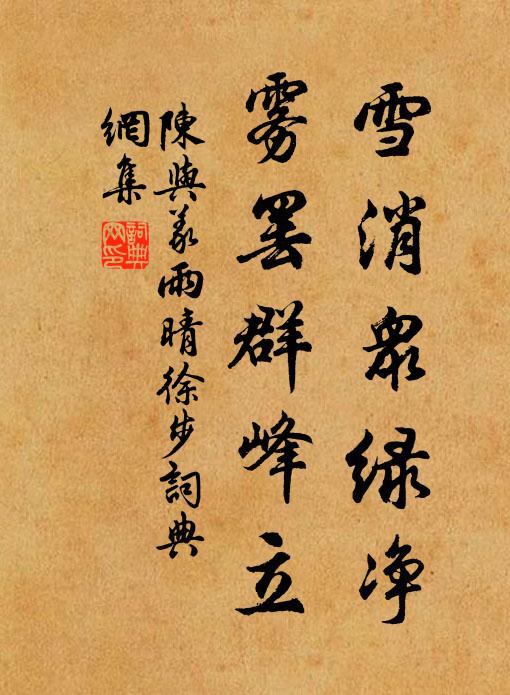 雪消衆绿净
雾罢群峰立
陳與義雨晴徐步詞典
網集
詞典
网印